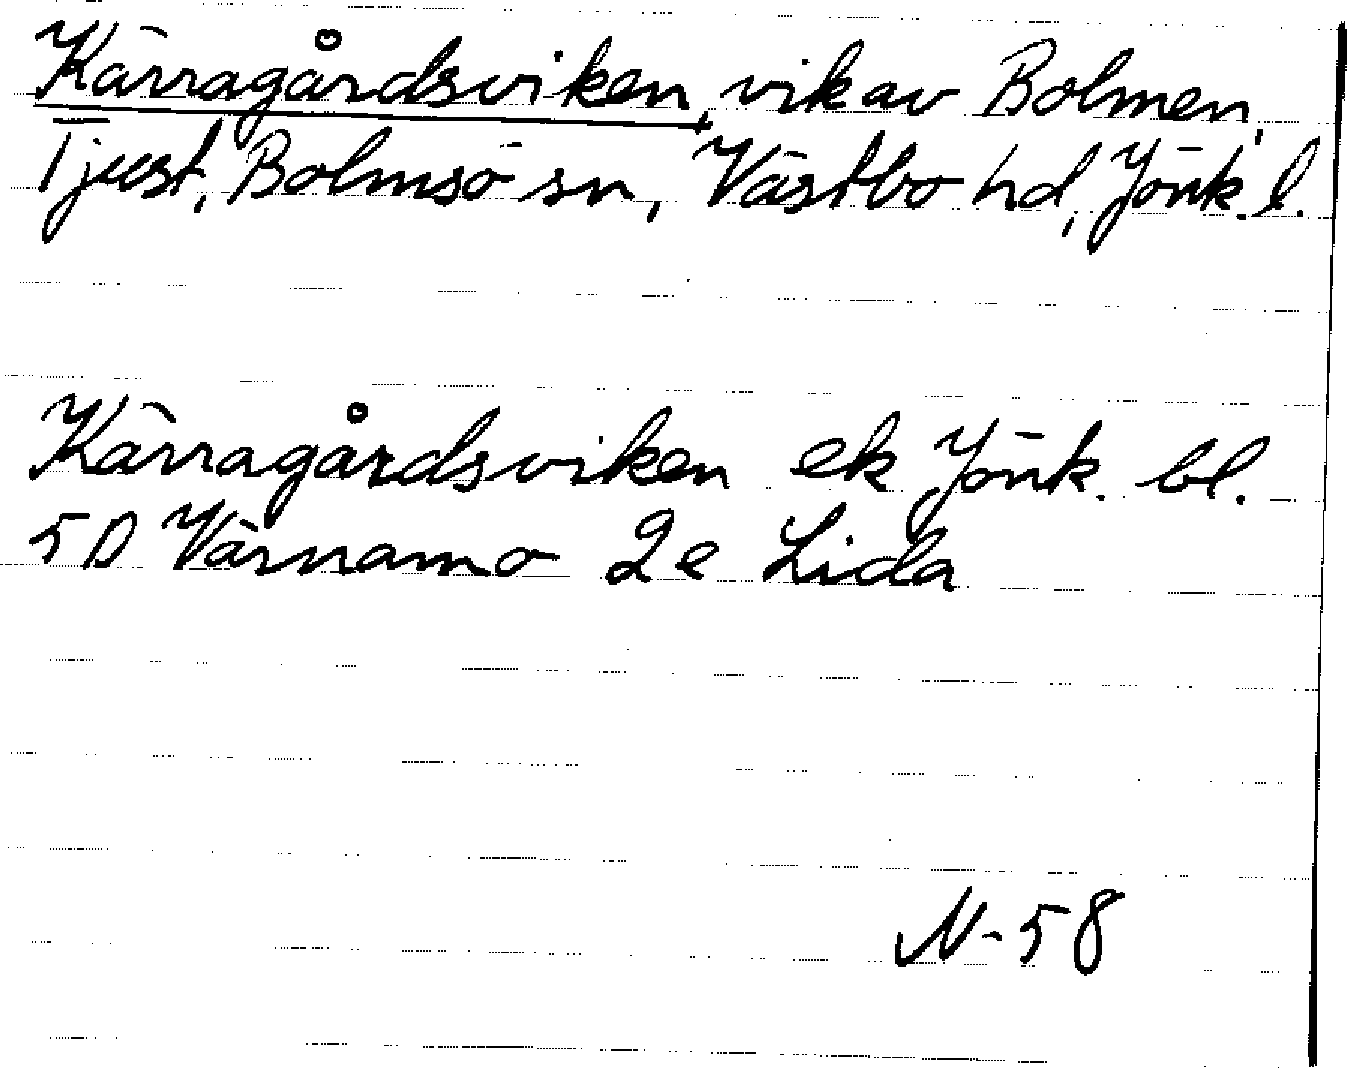 Kärragårdsviken, vik av Bolmen,
Tjust, Bolmsö sn, Västbo hd, Jönk. l.
Kärragårdsviken ek Jönk. bl.
5D Värnamo 2e Lida
N-58